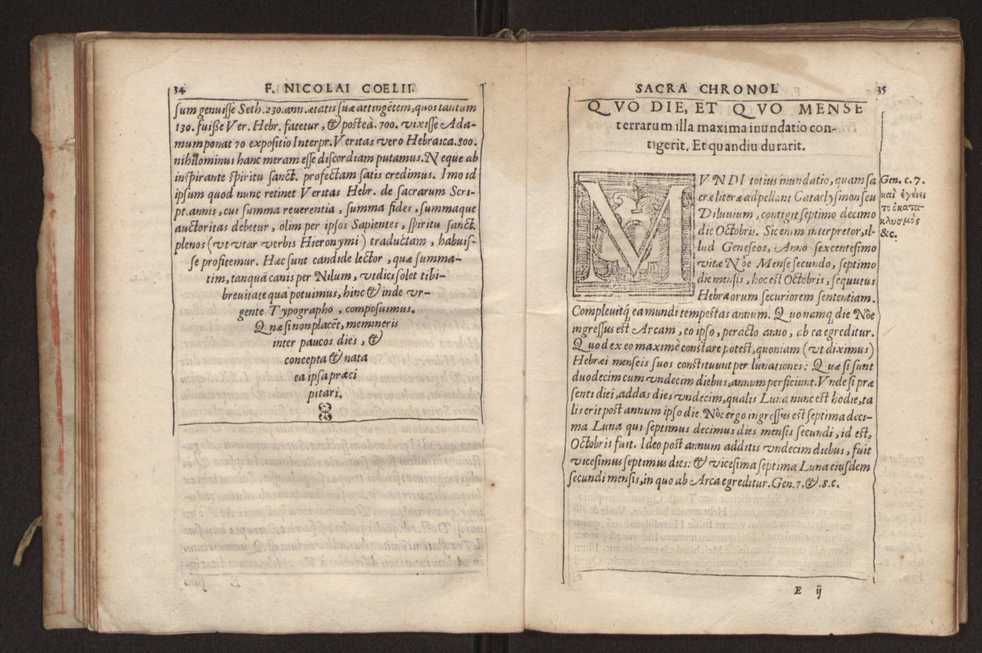 34 F. NICOLAI COELII.
sum genuisse Seth. 230. ann. ætatis suæ attingẽtem, quos tantum
130. fuisse Ver. Hebr. fatetur, & posteà. 700. vixisse Ada-
mum ponat 70 expositio Interpr. Veritas vero Hebraica. 800.
nihilominus hanc meram esse discordiam putamus. Neque ab
inspirante spiritu sanct. profectam satis credimus. Imo id
ipsum quod nunc retinet Veritas Hebr. de sacrarum Scri-
pt. annis, cui summa reuerentia, summa fides, summaque
auctoritas debetur, olim per ipsos Sapientes, spiritu sanct.
plenos (vt vtar verbis Hieronymi) traductam, habuis-
se profitemur. Hæc sunt candide lector, quæ summa-
tim, tanquã canis per Nilum, vt dici solet tibi-
breuitate qua potuimus, hinc & inde vr-
gente Typographo, composuimus.
Quæ si non placẽt, memineris
inter paucos dies, &
concepta & nata
ea ipsa præci
pitari.
SACRA CHRONOL 35
QVO DIE, ET QVO MENSE
terrarum illa maxima inundatio con-
tigerit, Et quandiu durarit.
MVNDI totius inundatio, quam sa
cræ literæ adpellant Cataclysmon seu
Diluuium, contigit septimo decimo
die Octobris. Sic enim interpretor, il-
lud Geneseos, Anno sexcentesimo
vitæ Nòe Mense secundo, septimo
die mensis, hoc est Octobris, sequutus
Hebræorum securiorem sententiam.
Compleuitq̃ ea mundi tempestas annum. Quo namq̃ die Nòe
ingressus est Arcam, eo ipso, peracto anno, ab ea egreditur.
Quod ex eo maximè constare potest, quoniam (vt diximus)
Hebræi menseis suos constituunt per lunationes: Quæ si sunt
duodecim cum vndecim diebus, annum perficiunt. Vnde si præ
senti diei, addas dies vndecim, qualis Luna nunc est hodie, ta
lis erit post annum ipso die. Nòe ergo ingressus est septima deci-
ma Luna qui septimus decimus dies mensis secundi, id est,
Octobris fuit. Ideo post annum additis vndecim diebus, fuit
vicesimus septimus dies: & vicesima septima Luna eiusdem
secundi mensis, in quo ab Arca egreditur. Gen. 7. &. 8. c.
Gen. c. 7.
καὶ ἐγένε
το ὁ κατα-
κλυσμὸς
&c.
E ij